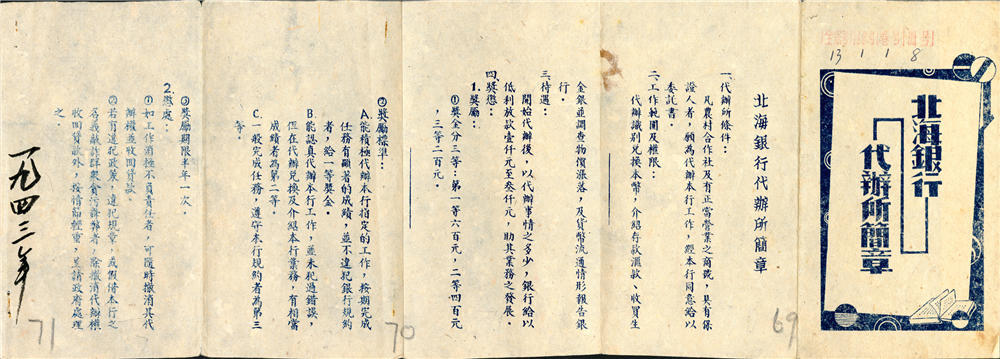 13 1 1 8
北海銀行
代辦所簡章
69
北海銀行代辦所簡章
一.代辦所條件：
凡農村合作社及有正當營業之商號，具有保
證人者，願為代辦本行工作，經本行同意給以
委託書。
二.工作範圍及權限：
代辦識別兌換本幣，介紹存款滙款、收買生
金銀並調查物價漲落，及貨幣流通情形報告銀
行。
三.待遇：
開始代辦後，以代辦事情之多少，銀行給以
低利放款壹仟元至叁仟元，助其業務之發展。
四.獎懲：
1.獎勵：
①獎金分三等：第一等六百元，二等四百元
，三等二百元。
70
②獎勵標準：
A.能積極代辦本行指定的工作，按期完成
任務有顯著的成績，並不違犯銀行規約
者，給一等獎金。
B.能認真代辦本行工作，並未犯過錯誤，
但在代辦兌換及介紹本行業務，有相當
成績者為第二等。
C.一般完成任務，遵守本行規約者為第三
等。
③獎勵期限半年一次。
2.懲處：
①如工作消極不負責任者，可隨時撤消其代
辦權並收回貸款。
②若有違犯政策，違犯規章，或假借本行之
名義敲詐群衆貪污舞弊者，除撤消代辦權
收回貸款外，按情節輕重，呈請政府處理
之。
一九四三年
71